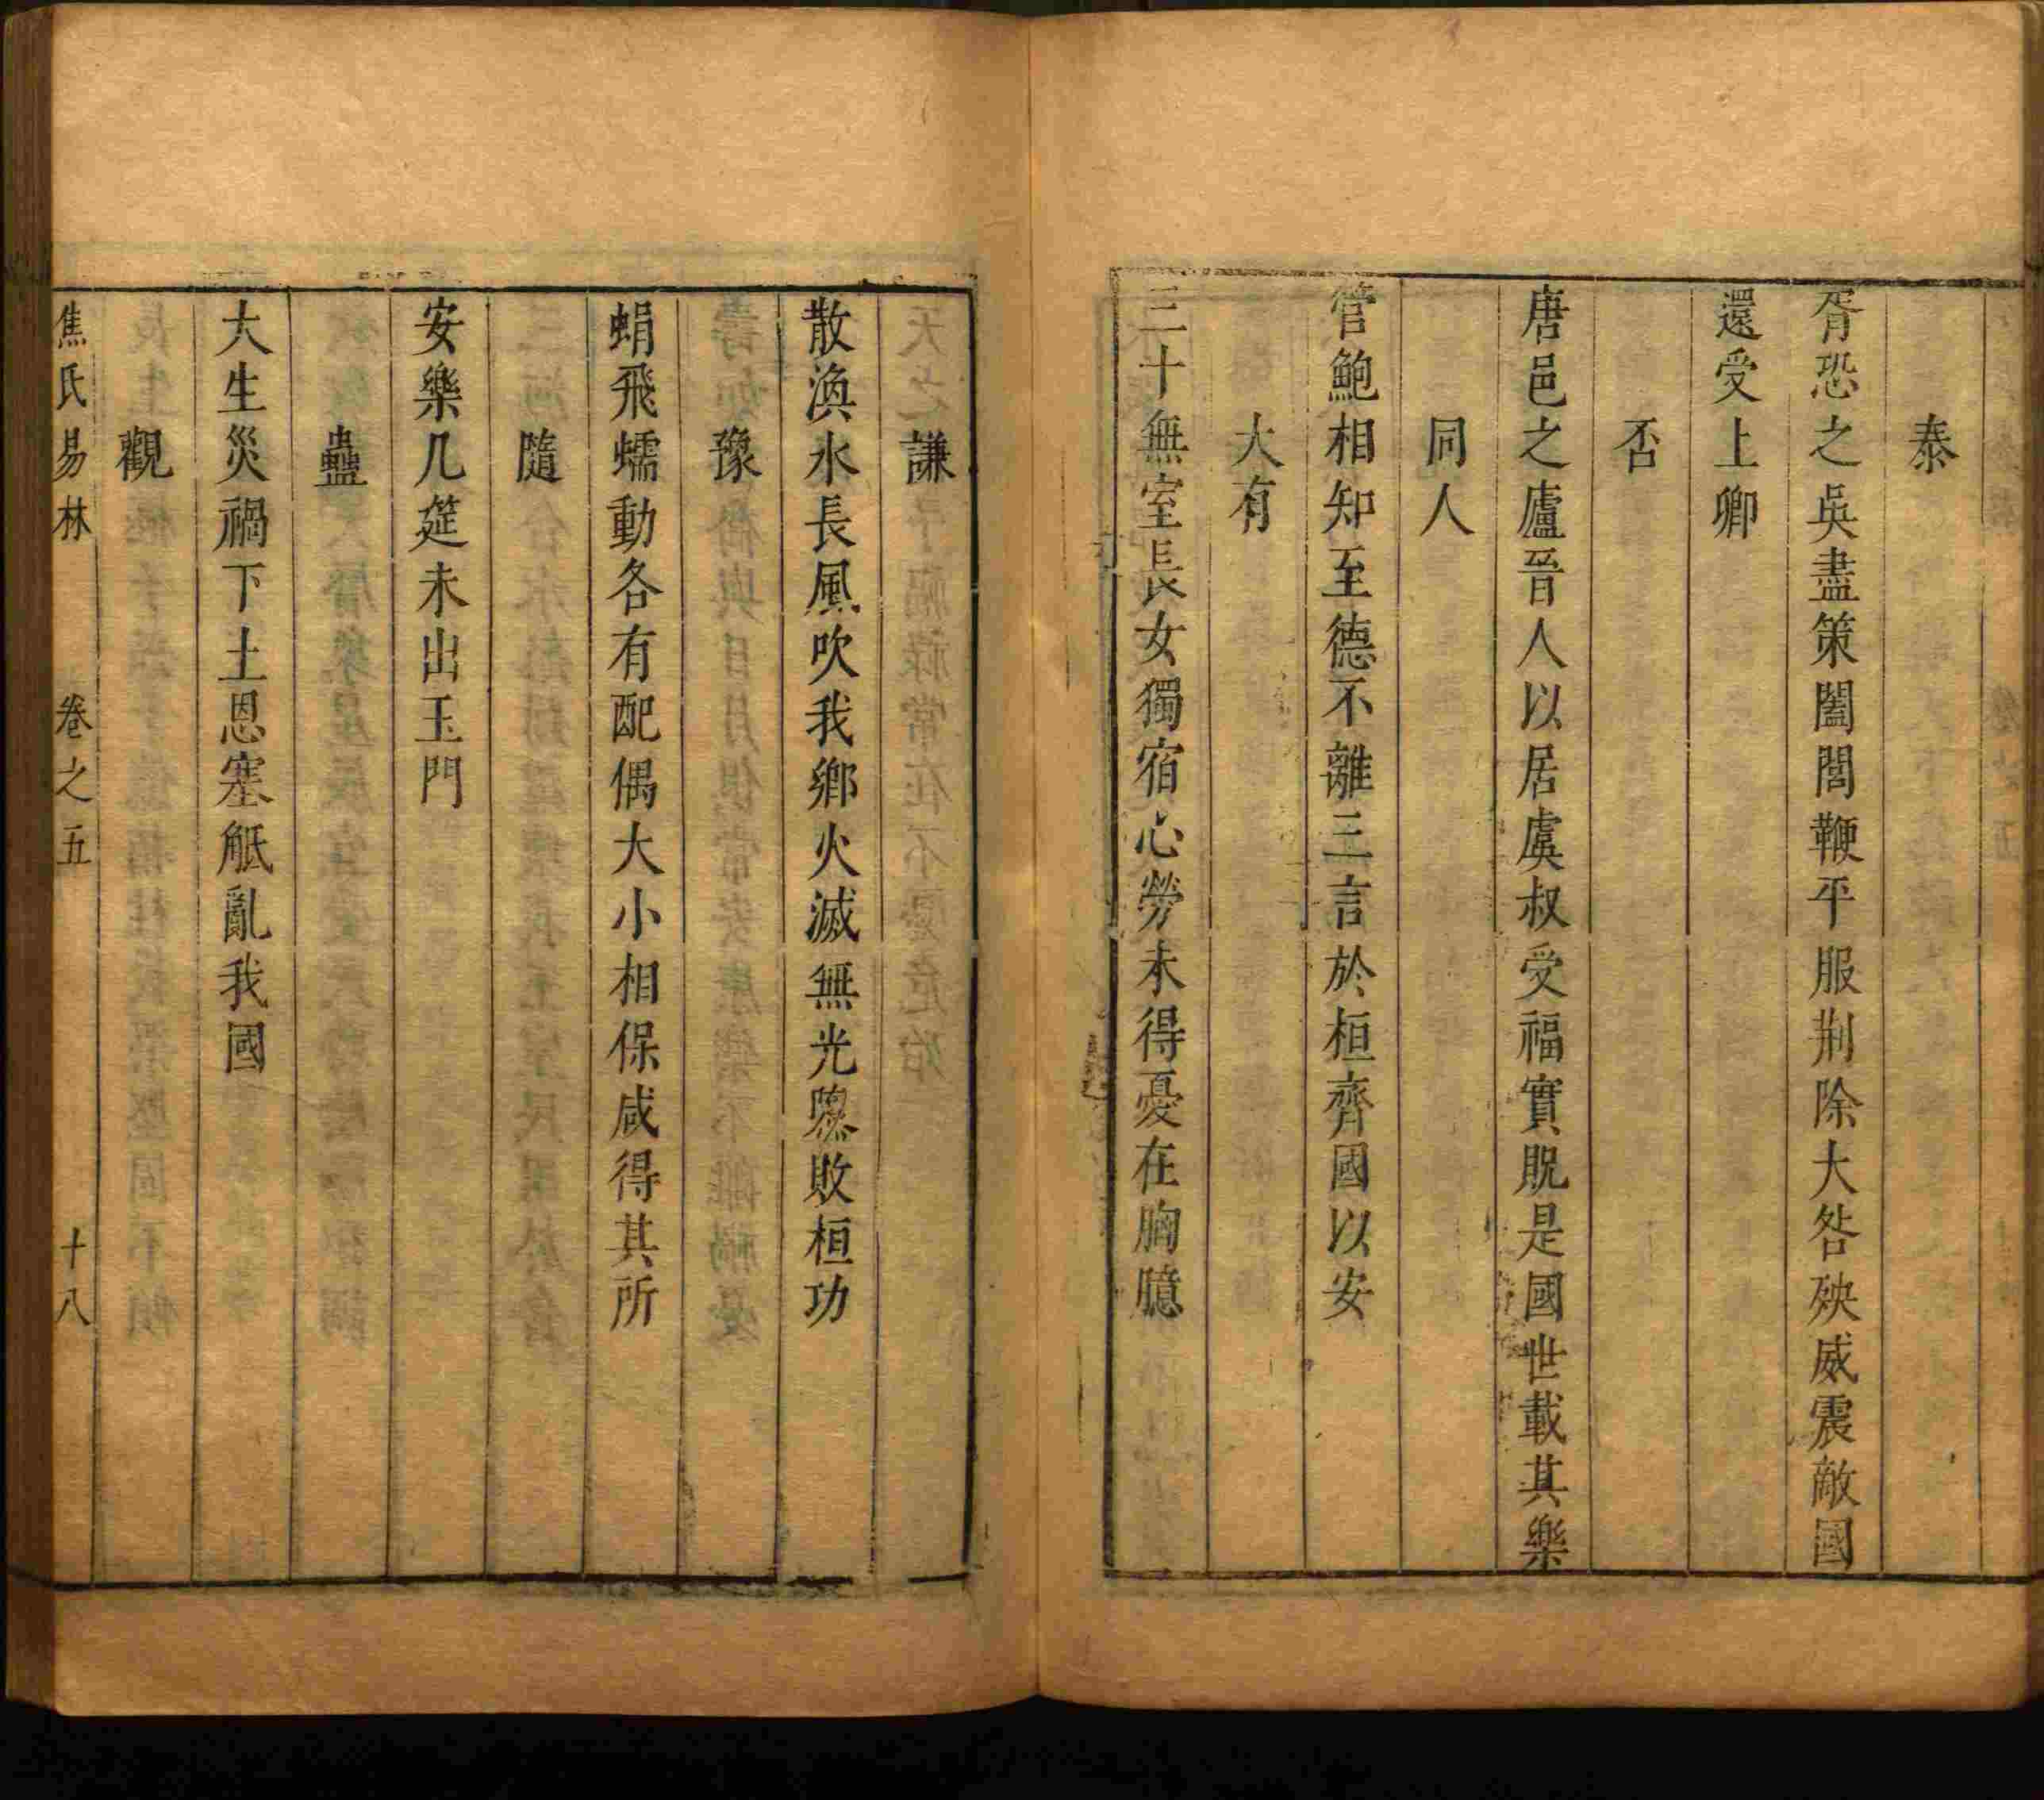 泰
胥恐之吳盡策闔閭鞭平服荆除大咎殃威震敵國
還受上卿
否
唐邑之廬晉人以居虞叔受福實貺是國世載其樂
同人
管鮑相知至德不離三言於桓齊國以安
大有
三十無室長女獨宿心勞未得憂在胸臆
謙
散渙水長風吹我鄉火滅無光敗桓功
豫
蜎飛蠕動各有配偶大小相保咸得其所
隨
安樂几筵未出玉門
蠱
大生災禍下土恩塞觝亂我國
觀
焦氏易林 卷之五 十八